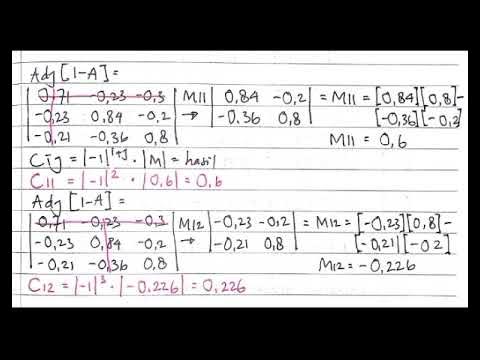 Adj [1-A] =
|0,71 -0,23 -0,3| M11 |0,84 -0,2| = M11 = [0,84][0,8] -
|-0,23 0,84 -0,2| → |-0,36 0,8| [-0,36][-0,2]
|-0,21 -0,36 0,8| M11 = 0,6
Cij = |-1|^{i+j} · |M| = hasil
C11 = |-1|² · |0,6| = 0,6
Adj [1-A] =
|0,71 -0,23 -0,3| M12 |-0,23 -0,2| = M12 = [-0,23][0,8] -
|-0,23 0,84 -0,2| → |-0,21 0,8| [-0,21][-0,2]
|-0,21 -0,36 0,8| M12 = -0,226
C12 = |-1|³ · |-0,226| = 0,226